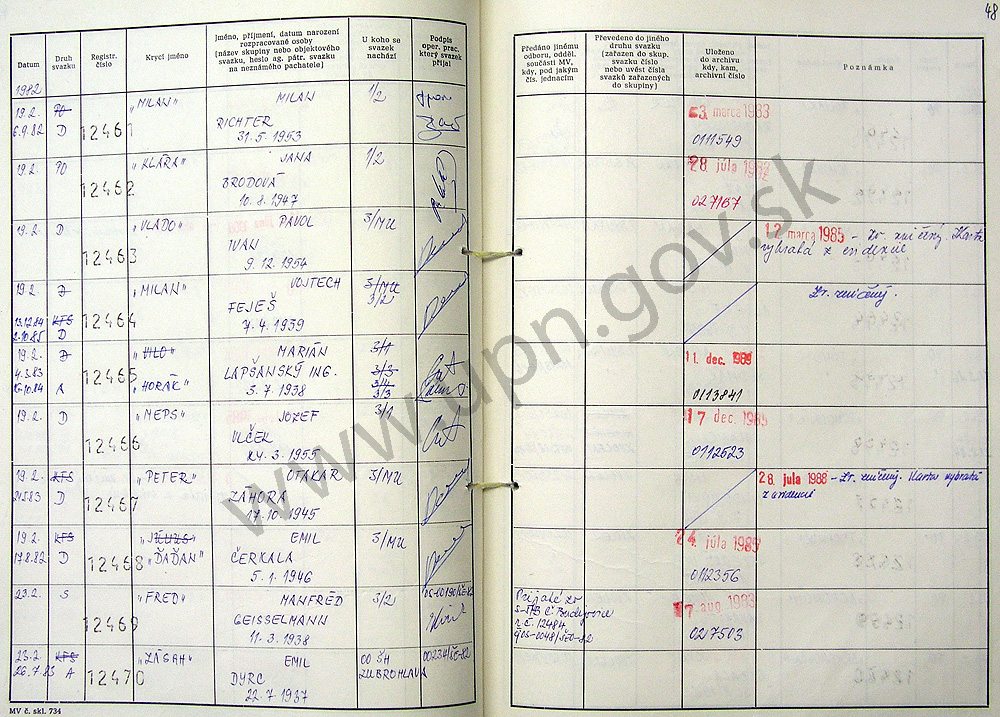 48
Datum
Druh svazku
Registr. číslo
Krycí jméno
Jméno, příjmení, datum narození
rozpracované osoby
(název skupiny nebo objektového
svazku, heslo ag. pátr. svazku
na neznámého pachatele)
U koho se
svazek
nachází
Podpis
oper. prac.
který svazek
přijal
Předáno jinému
odboru, odděl.
součásti MV,
kdy, pod jakým
čís. jednacím
Převedeno do jiného
druhu svazku
(zařazen do skup.
svazku číslo
nebo uvést čísla
svazků zařazených
do skupiny)
Uloženo
do archivu
kdy, kam,
archivní číslo
Poznámka
1982
19.2. PO „MILAN" MILAN 1/2
6.9.82 D 12461 RICHTER
31.5.1953
3. marca 1983
0111549
19.2. PO „KLÁRA" JANA 1/2
12462 BRODOVÁ
10.8.1947
28. júla
027167
19.2. D „VLADO" PAVOL 3/MU
12463 IVAN
9.12.1954
12. marca 1985 - Zv. zničený. Karta
vybratá z evidencie
19.2. D „MILAN" VOJTECH 3/MU
3/2
13.12.84 KFS 12464 FEJEŠ
2.10.85 D 7.4.1939
Zv. zničený.
19.2. D „VILO" MARIÁN 3/1
4.3.83 12465 LAPŠANSKÝ ING. 3/3
A „HORÁK" 3.7.1938 3/4
3/3
11. dec. 1989
0113841
19.2. D „MEPS" JOZEF 3/1
12466 VLČEK
1955
17 dec. 1985
0112523
19.2. KFS „PETER" OTAKAR 3/MU
D 12467 ZÁHORA
17.10.1945
28. júla 1988 - Zv. zničený. Karta vybratá
z evidencie
19.2. KFS EMIL 3/MU
17.8.82 D 12468 „ĎAĎAN" ČERKALA
5.1.1946
24. júla 1985
0112356
23.2. S „FRED" MANFRÉD 3/2
12469 GEISSELMANN
11.3.1938
Prijaté zo
S-ŠtB Č. Budejovice
r.č. 12484
17 aug. 1983
027503
23.2. KFS „ZÁSAH" EMIL OO ŠH
26.7.83 A 12470 DYRC ZUBROHLAVA
22.7.1937
MV č. skl. 734
www.upn.gov.sk